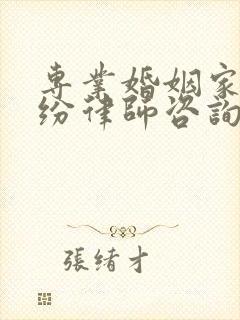 專業婚姻家
紛律師咨詢
張緒才